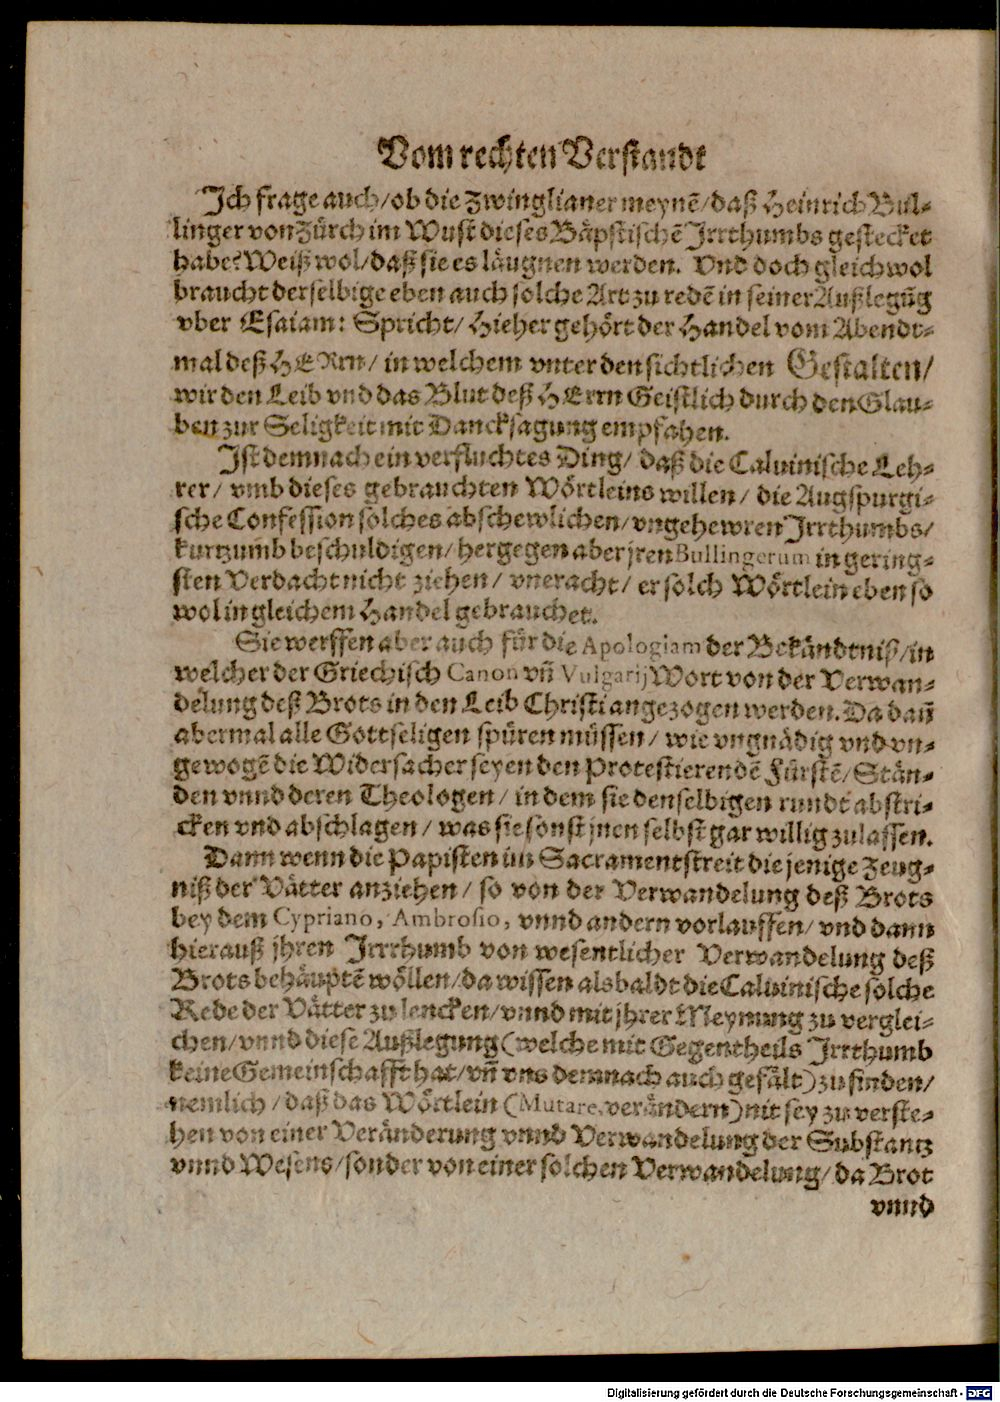 Vom rechten Verstandt
Ich frage auch/ob die Zwinglianer meynẽ/daß Heinrich Bul-
linger von Zürch im Wust dieses Bäpstischẽ Irrthumbs gestecket
habe? Weiß wol/daß sie es läugnen werden. Vnd doch gleichwol
braucht derselbige eben auch solche Art zu redẽ in seiner Außlegũg
vber Esaiam: Spricht/ Hieher gehört der Handel vom Abendt-
mal deß HERrn/ in welchem vnter den sichtlichen Gestalten/
wir den Leib vnd das Blut deß HErrn Geistlich durch den Glau-
ben zur Seligkeit mit Dancksagung empfahen.
Ist demnach ein verfluchtes Ding/ daß die Calvinische Leh-
rer/ vmb dieses gebrauchten Wörtleins willen/ die Augspurgi-
sche Confession solches abschewlichen/vngehewren Irrthumbs/
kurtzumb beschuldigen/ hergegen aber jren Bullingerum in gering-
sten Verdacht nicht ziehen/ vneracht/ er solch Wörtlein eben so
wol in gleichem Handel gebrauchet.
Sie werffen aber auch für die Apologiam der Bekändtniß/in
welcher der Griechisch Canon vñ Vulgarij Wort von der Verwan-
delung deß Brots in den Leib Christi angezogen werden. Da dañ
abermal alle Gottseligen spüren müssen/ wie vngnädig vnd vn-
gewogẽ die Widersacher seyen den Protestierendẽ Fürstẽ/ Stän-
den vnnd deren Theologen/ in dem sie denselbigen rundt abstri-
cken vnd abschlagen/ was sie sonst jnen selbst gar willig zulassen.
Dann wenn die Papisten im Sacramentstreit die jenige Zeug-
niß der Vätter anziehen/ so von der Verwandelung deß Brots
bey dem Cypriano, Ambrosio, vnnd andern vorlauffen/ vnd dann
hierauß jhren Irrrhumb von wesentlicher Verwandelung deß
Brots behäuptẽ wöllen/da wissen alsbaldt die Calvinische solche
Rede der Vätter zu lencken/ vnnd mit jhrer Meynung zu verglei-
chen/ vnnd diese Außlegung (welche mit Gegentheils Irrthumb
keine Gemeinschafft hat/vñ vns demnach auch gefält) zu finden/
nemlich/daß das Wörtlein (Mutare, verändern) nit sey zu verste-
hen von einer Veränderung vnnd Verwandelung der Substantz
vnnd Wesens/sonder von einer solchen Verwandelung/ da Brot
vnnd
Digitalisierung gefördert durch die Deutsche Forschungsgemeinschaft - DFG